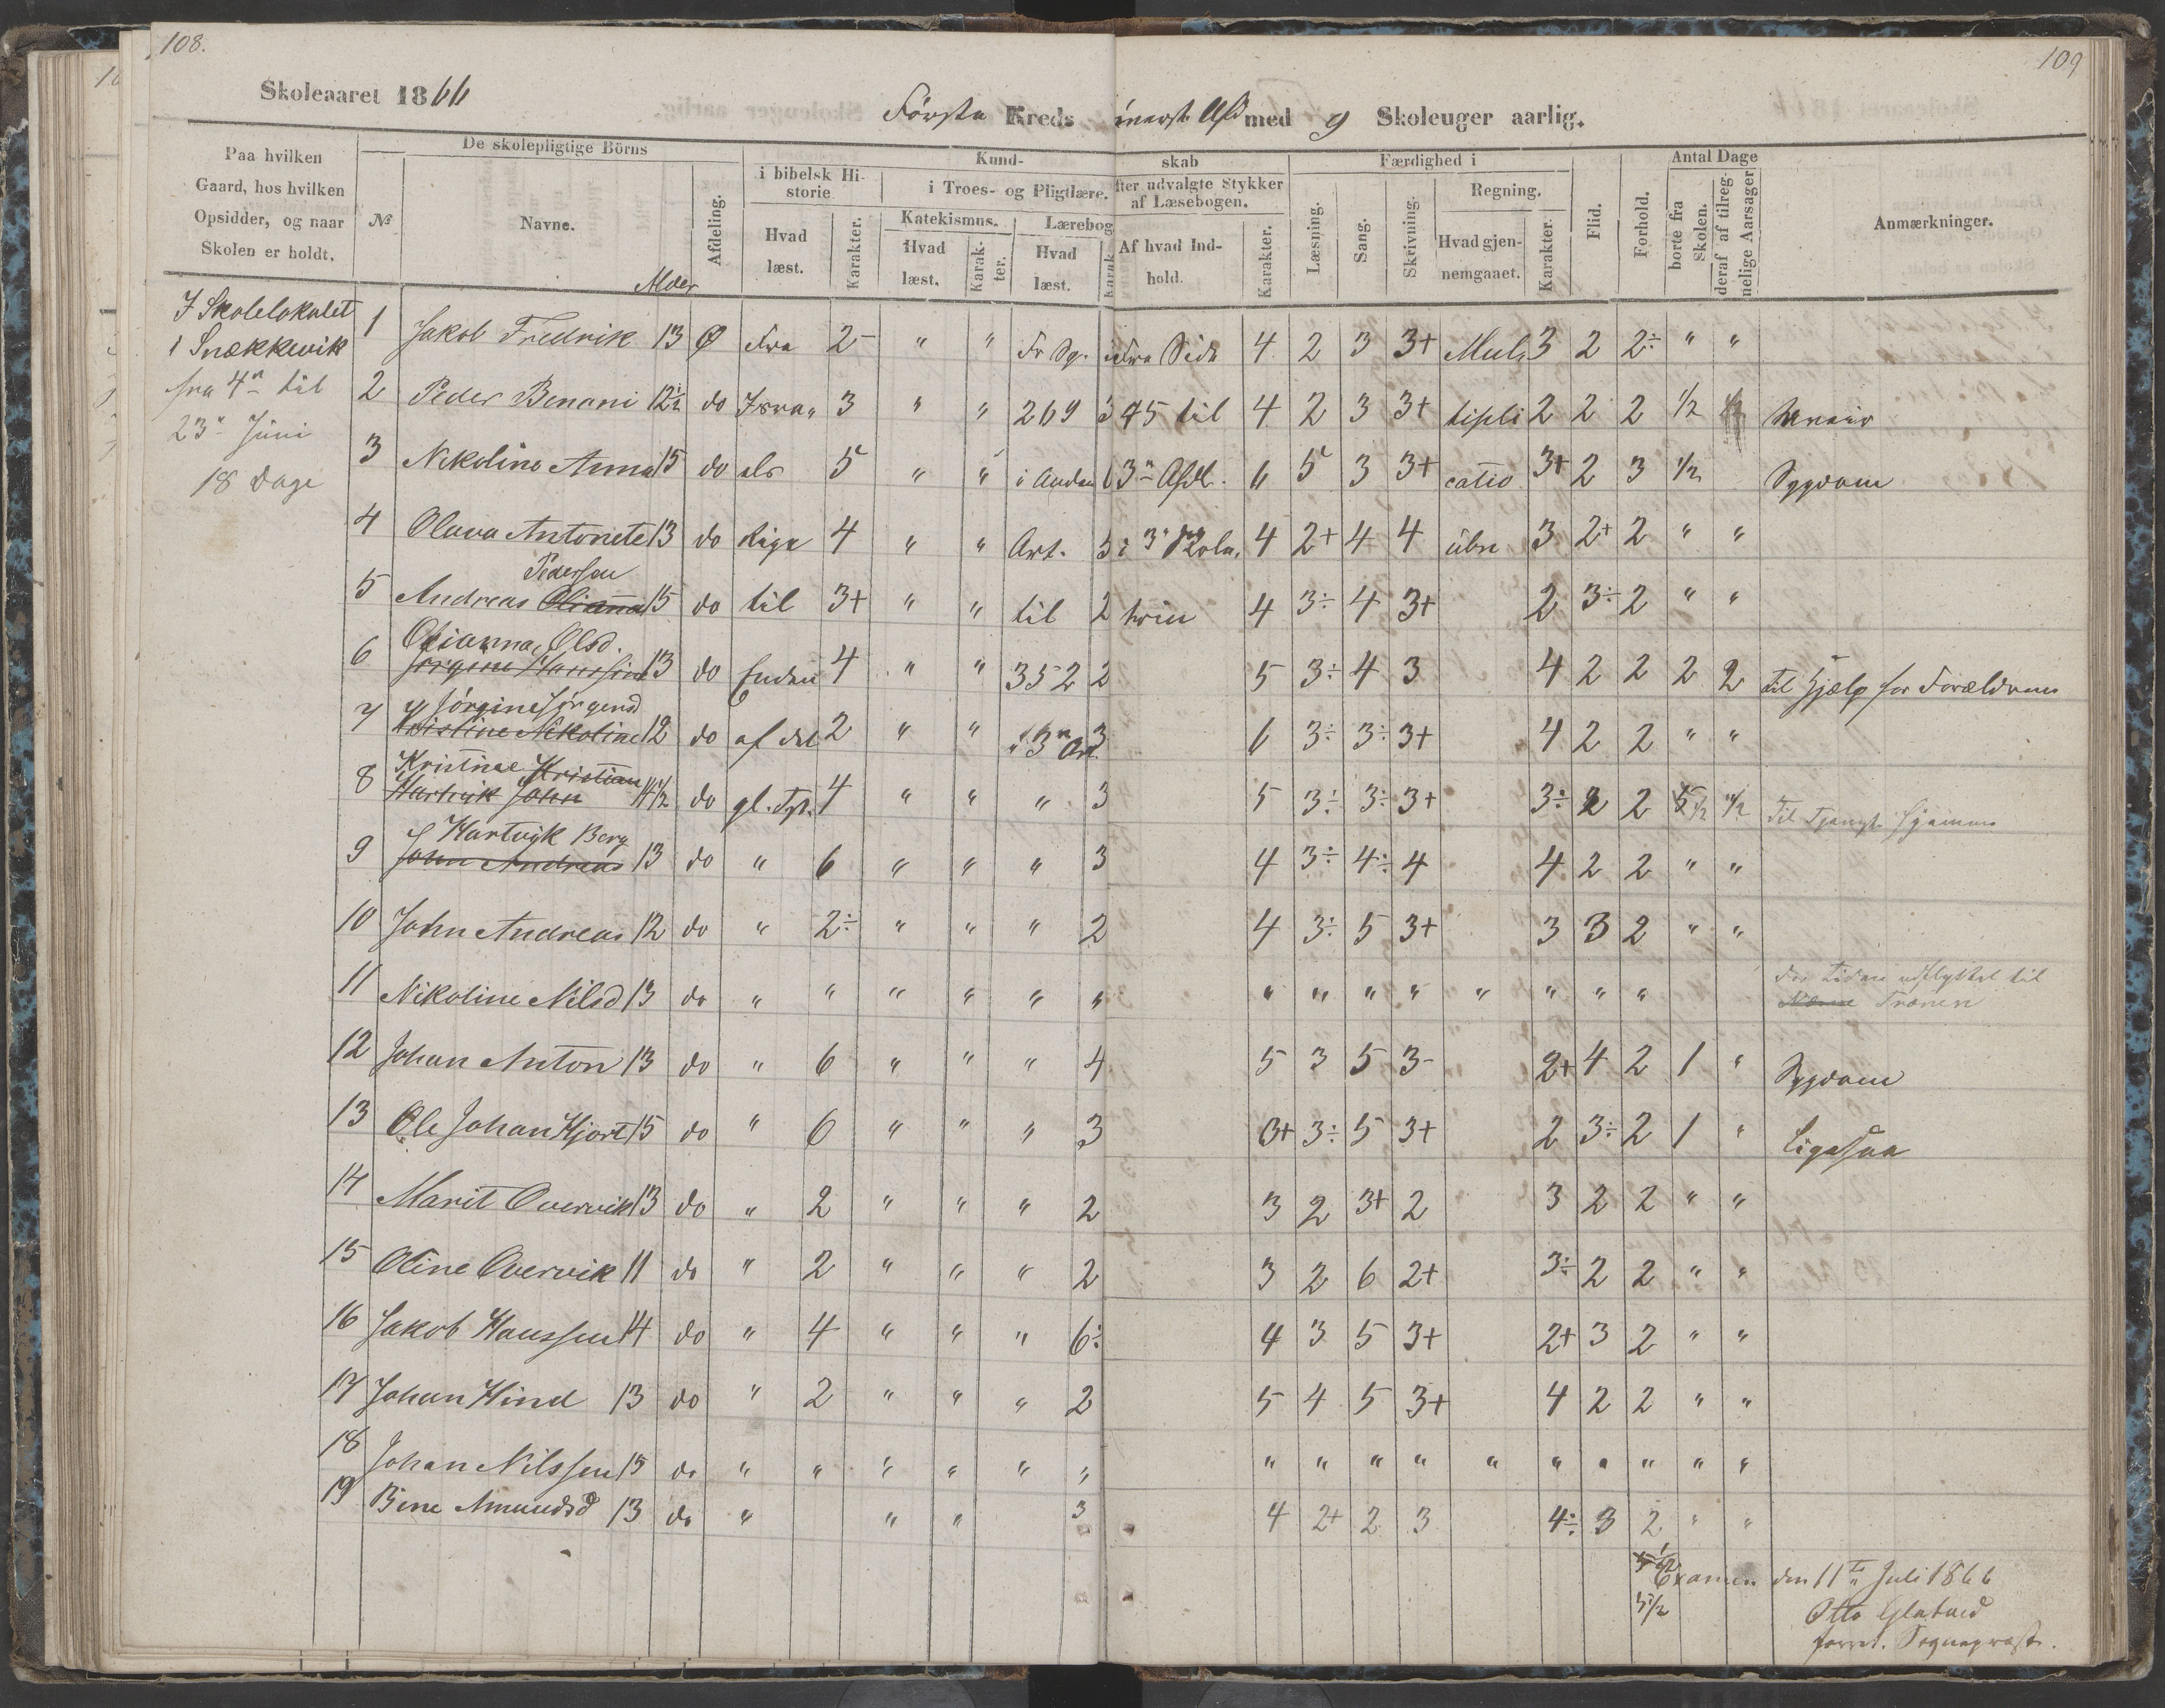 108.
109
Skoleaaret 1866
Første Kreds med 9 Skoleuger aarlig.
Paa hvilken Gaard, hos hvilken Opsidder, og naar Skolen er holdt.
De skolepligtige Börns
№
Navne.
Alder
Afdeling.
Kund-
skab
i bibelsk Hi-
storie
Hvad læst.
Karakter.
i Troes- og Pligtlære.
Katekismus.
Hvad læst.
Karak-
ter.
Lærebog
Hvad læst.
Karak
fter udvalgte Stykker
af Læsebogen.
Af hvad Ind-
hold.
Karakter.
Færdighed i
Læsning.
Sang.
Skrivning.
Regning.
Hvad gjen-
nemgaaet.
Karakter.
Flid.
Forhold.
Antal Dage
borte fra Skolen.
deraf af tilreg-
nelige Aarsager.
Anmærkninger.
I Skolelokalet
i Snækkevik
fra 4n til
23n Juni
18 Dage
1 Jakob Fredrik 13 Ø Fra 2- " " Fr Sp. Fra Side 4 2 3 3+ Mul 3 2 2÷ " "
2 Peder Benoni 12½ do Isra 3 " " 269 3 45 til 4 2 3 3+ tipli 2 2 2 1/2
3 Nikoline Anna 15 do els 5 " " i Anden 6 3n Afdl. 6 5 3 3+ catio 3+ 2 3 1/2 Sygdom
4 Olava Antonete 13 do Rige 4 " " Art. 3 4 2+ 4 4 3 2+ 2 " "
Pedersen
5 Andreas Olianna 15 do til 3+ " " til 2 trin 4 3÷ 4 3+ 2 3÷ 2 " "
Olianna Olsd.
6 Jørgine Hanssine 13 do Enden 4 " " 352 2 5 3÷ 4 3 4 2 2 2 2 til Hjælp for Forældrene
Jørgine Jørgensd
7 Kristine Nikoline 12 do af det 2 " " 3n Art. 3 6 3÷ 3÷ 3+ 4 2 2 " "
Kristine Kristian
8 Hartvik John 14½ do gl. Tst. 4 " " " 3 5 3÷ 3÷ 3+ 3÷ 2 2
Hartvik Berg
9 John Andreas 13 do " 6 " " " 3 4 3÷ 4÷ 4 4 2 2 " "
10 John Andreas 12 do " 2÷ " " " 2 4 3÷ 5 3+ 3 3 2 " "
11 Nikoline Nilsd 13 do " " " " " " " " " " " " " " udflyttet til
Trænen
12 Johan Anton 13 do " 6 " " " 4 5 3 5 3- 2+ 4 2 1 " Sygdom
13 Ole Johan Hjort 15 do " 6 " " " 3 3+ 3÷ 5 3+ 2 3÷ 2 1 " Ligesaa
14 Marit Overvik 13 do " 2 " " " 2 3 2 3+ 2 3 2 2 " "
15 Oline Overvik 11 do " 2 " " " 2 3 2 6 2+ 3÷ 2 2 " "
16 Jakob Hanssen 14 do " 4 " " " 6÷ 4 3 5 3+ 2+ 3 2 " "
17 Johan Hind 13 do " 2 " " " 2 5 4 5 3+ 4 2 2 " "
18 Johan Nilssen 15 do " " " " " " " " " " " " " " " "
19 Bine Amundsd 13 do " " " 3 4 2+ 2 3 4÷ 3 2 " "
Examen den 11te Juli 1866
3½
Otto
Sogneprest.